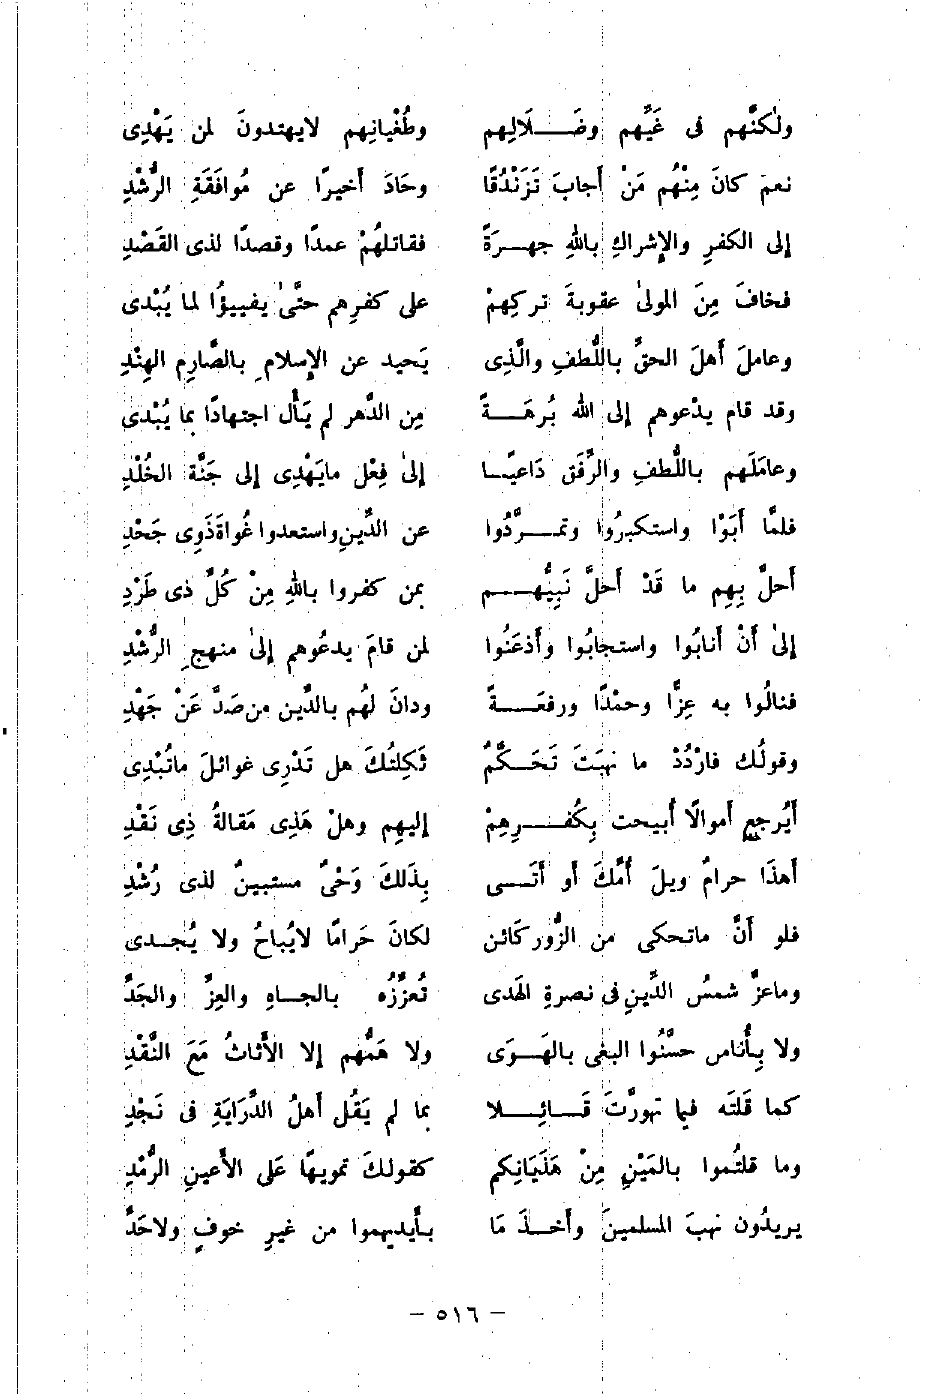 ولٰكنَّهم فى غَيِّهم وضَـــلَالِهم وطُغْيانِهم لايهتدونَ لمن يَهْدِى
نعمَ كانَ مِنْهُم مَنْ أجابَ تَزَنْدُقًا وحَادَ أخيرًا عن مُوافَقَةِ الرُّشْدِ
إلى الكفرِ والإشراكِ باللهِ جهـــرَةً فقاتلهُمْ عمدًا وقصدًا لذى القَصْدِ
فخافَ مِنَ المولىٰ عقوبةَ تركِهمْ على كفرِهم حتَّىٰ يفييؤُا لما يُبْدى
وعاملَ أهلَ الحقِّ باللُّطفِ والَّذِى يَحيد عن الإسلامِ بالصَّارِمِ الهِنْدِ
وقد قام يدْعوهم إلى الله بُرهَـــةً مِن الدَّهر لم يَأْل اجتهادًا بما يُبْدى
وعامَلَهم باللُّطفِ والرِّفَق دَاعيًـــا إلىٰ فِعْل مايَهْدِى إلى جَنَّة الخُلْدِ
فلمَّا أَبَوْا واستكبرُوا وتمـــرَّدُوا عن الدِّينِ واستعدوا غُواةَ ذَوِى جَحْدِ
أحلَّ بِهِم ما قَدْ أحلَّ نَبِيُّهـــم بمن كفروا باللهِ مِنْ كُلِّ ذى طَرْدِ
إلىٰ أنْ أنابُوا واستجابُوا وأذعَنُوا لمن قامَ يدعُوهم إلىٰ منهجِ الرُّشْدِ
فنالُوا به عِزًّا وحمْدًا ورفعَـــةً ودانَ لهُم بالدِّين من صَدَّ عَنْ جَهْدِ
وقولُك فارْدُدْ ما نهبَتَ تَحَـــكُّمٌ ثَكِلتُكَ هل تَدْرِى غوائلَ ماتُبْدِى
أيُرجع أموالًا أبيحت بِكُفـــرِهِمْ إليهِم وهلْ هَذِى مَقالةُ ذِى نَقْدِ
أهذَا حرامٌ ويلَ أُمِّكَ أو أتَـــى بِذَلكَ وَحْىٌ مستبينٌ لذى رُشْدِ
فلو أنَّ ماتحكى من الزُّور كَائن لكانَ حَرامًا لايُباحُ ولا يُجـــدى
وماعزَّ شمسُ الدِّينِ فى نصرةِ الهَدى تُعزِّزُه بالجـــاهِ والعِزِّ والجَدِّ
ولا بِأُناس حسَّنُوا البغى بالهَـــوَى ولا هَمُّهم إلا الأَثاثُ مَعَ النَّقْدِ
كما قَلتَه فيما تهورَّتَ قَـــائِـــلا بما لم يَقُل أهلُ الدِّرَايَةِ فى نَجْدِ
وما قلتُموا بالمَيْنِ مِنْ هَذَيَانِكم كقولكَ تمويهًا عَلى الأَعينِ الرُّمْدِ
يريدُون نهبَ المسلمينَ وأخـــذَ مَا بأيديهموا من غيرِ خوفٍ ولاحَدِّ
– ٥١٦ –